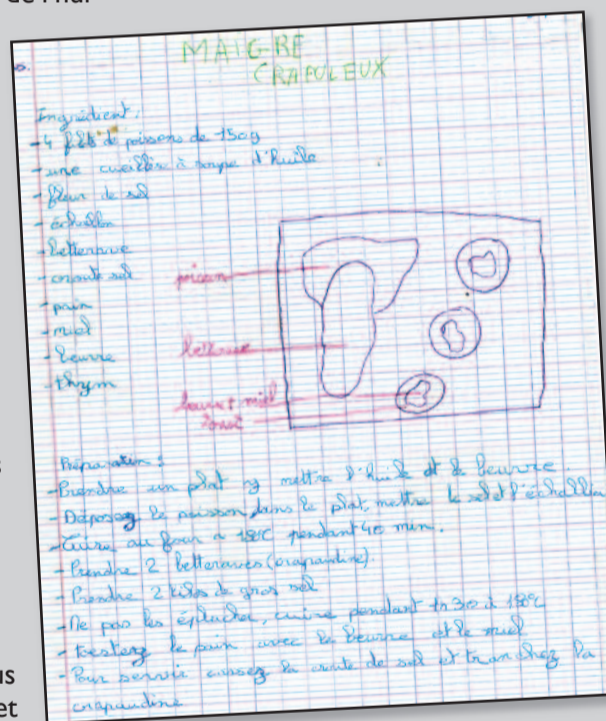 MAIGRE
CRAPULEUX
Ingrédient:
- 4 filets de poissons de 150g
- une cuellère à soupe d'huile
- fleur de sel
- échallon
- betterave
- croute sel
- pain
- miel
- beurre
- thym
poisson
betterave
beurre + miel
toast
Préparation:
- Prendre un plat y mettre l'huile et le beurre.
- Déposez le poisson dans le plat, mettre le sel et l'échallion
- Cuire au four a 180C pendant 40 min.
- Prendre 2 betteraves (crapaudine)
- Prendre 2 kilos de gros sel
- Ne pas les éplucher, cuire pendant 1h30 à 180C
- toasterz le pain avec le beurre et le miel
- Pour servir cassez la croute de sel et tranchez la
crapaudine
us
et